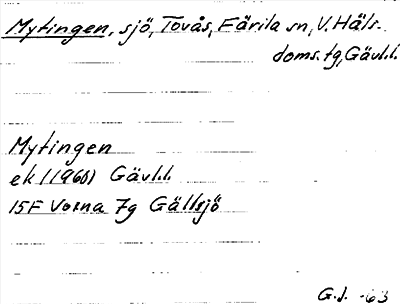 Mytingen, sjö, Tovås, Färila sn, V. Häls.
doms.tg, Gävl.l.
Mytingen
ek (1960) Gävl.l.
15F Voxna 7g Gällsjö
G.J. -63